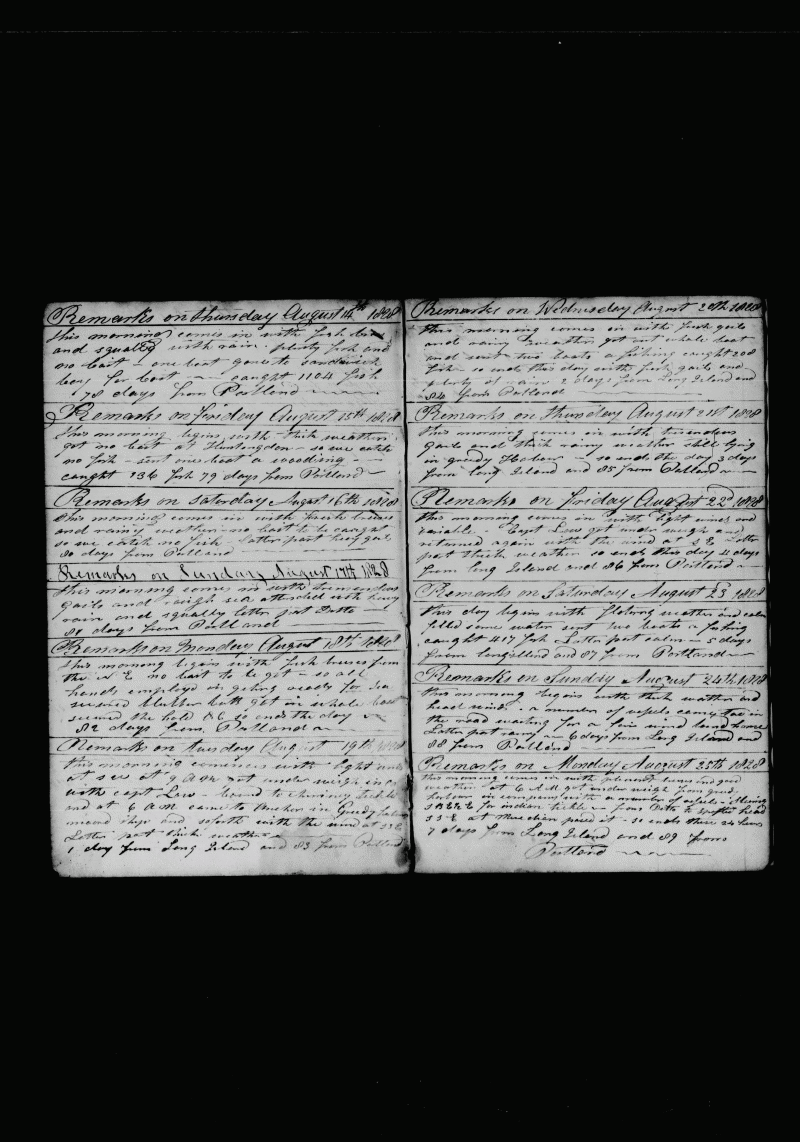 Remarks on thursday August 14th 1828
this morning comes in with fresh
and squally with rain plenty fish and
no bait - one boat gone to sandwich
bay for bait - caught 1104 fish
78 days from Portland
Remarks on Friday August 15th 1828
this morning begins with thick weather
got no bait at Huntingdon - so we catch
no fish - sent one boat a wooding -
caught 136 fish 79 days from Portland
Remarks on Saturday August 16th 1828
this morning comes in with fresh breeze
and rainy weather - no bait to be caught
so we catch no fish - latter part heavy gail
80 days from Portland
Remarks on Sunday August 17th 1828
this morning comes in with tremendous
gails and rough sea attended with heavy
rain and squally latter part Ditto
81 days from Portland
Remarks on Monday August 18th 1828
this morning begins with fresh breeses from
the N E no bait to be got - so all
hands employed in geting ready for sea
secured blubber butt got in whale boat
secured the hold &C so ends the day
82 days from Portland
Remarks on tuesday August 19th 1828
this morning comences with light winds
at sea at 9 A M got under weigh in Co
with capt Low - bound to tickle
and at 6 A M came to anchor in Greedy harbour
ship and with the wind at S S E
Latter part thick weather
1 day from Long Island and 83 from Portland
Remarks on Wednesday August 20th 1828
this morning comes in with fresh gails
and rainy weather got out whale boat
and sent two boats a fishing caught 208
fish - so ends this day with fresh gails and
plenty of rain 2 days from Long Island and
84 from Portland
Remarks on thursday August 21st 1828
this morning comes in with tremendous
gails and thick rainy weather still lying
in greedy Harbour - so ends the day 3 days
from long Island and 85 from Portland
Remarks on Friday August 22d 1828
this morning comes in with light winds and
variable - Capt Low got under weigh and
returned again with the wind at S E Latter
part thick weather so ends this day 4 days
from long Island and 86 from Portland
Remarks on Saturday August 23 1828
this day begins with weather and calm
filled some water sent two boats a fishing
caught 417 fish Latter part calm - 5 days
from long Island and 87 from Portland
Remarks on Sunday August 24th 1828
this morning begins with thick weather and
head wind - a number of vessels came too in
the road waiting for a fair wind bound home
Latter part rainy - 6 days from Long Island and
88 from Portland
Remarks on Monday August 25th 1828
this morning comes in with pleasant breeze and good
weather at 6 A M got under weigh from greedy
harbour in company with a number of vessels -
for indian tickle - from Ditto to head
S S E at Meridian passed it - so ends these 24 hours
7 days from Long Island and 89 from
Portland